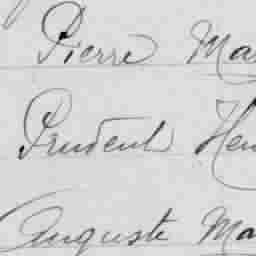 Pierre Ma
Prudent Hen
Auguste Ma